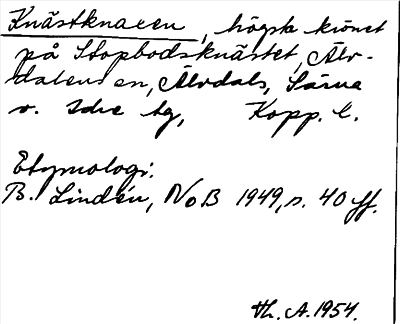 Knästknaeen, högsta krönet
på Stopbodsknästet, Älv-
dalens sn, Älvdals, Särna
o. Idre tg, Kopp. l.
Etymologi:
B. Lindén, NoB 1949, s. 40 ff.
Th. A. 1954.